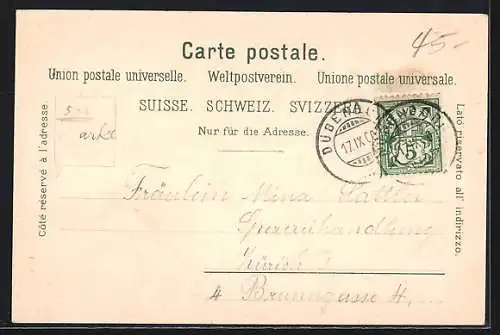 45-
Carte postale.
Union postale universelle. Weltpostverein. Unione postale universale.
SUISSE. SCHWEIZ. SVIZZERA
Nur für die Adresse.
Côté réservé à l'adresse.
Lato riservato all' indirizzo.
17.IX
5
Fräulein Mina
Spezereihandlung
Zürich I
4 Brunngasse 4,